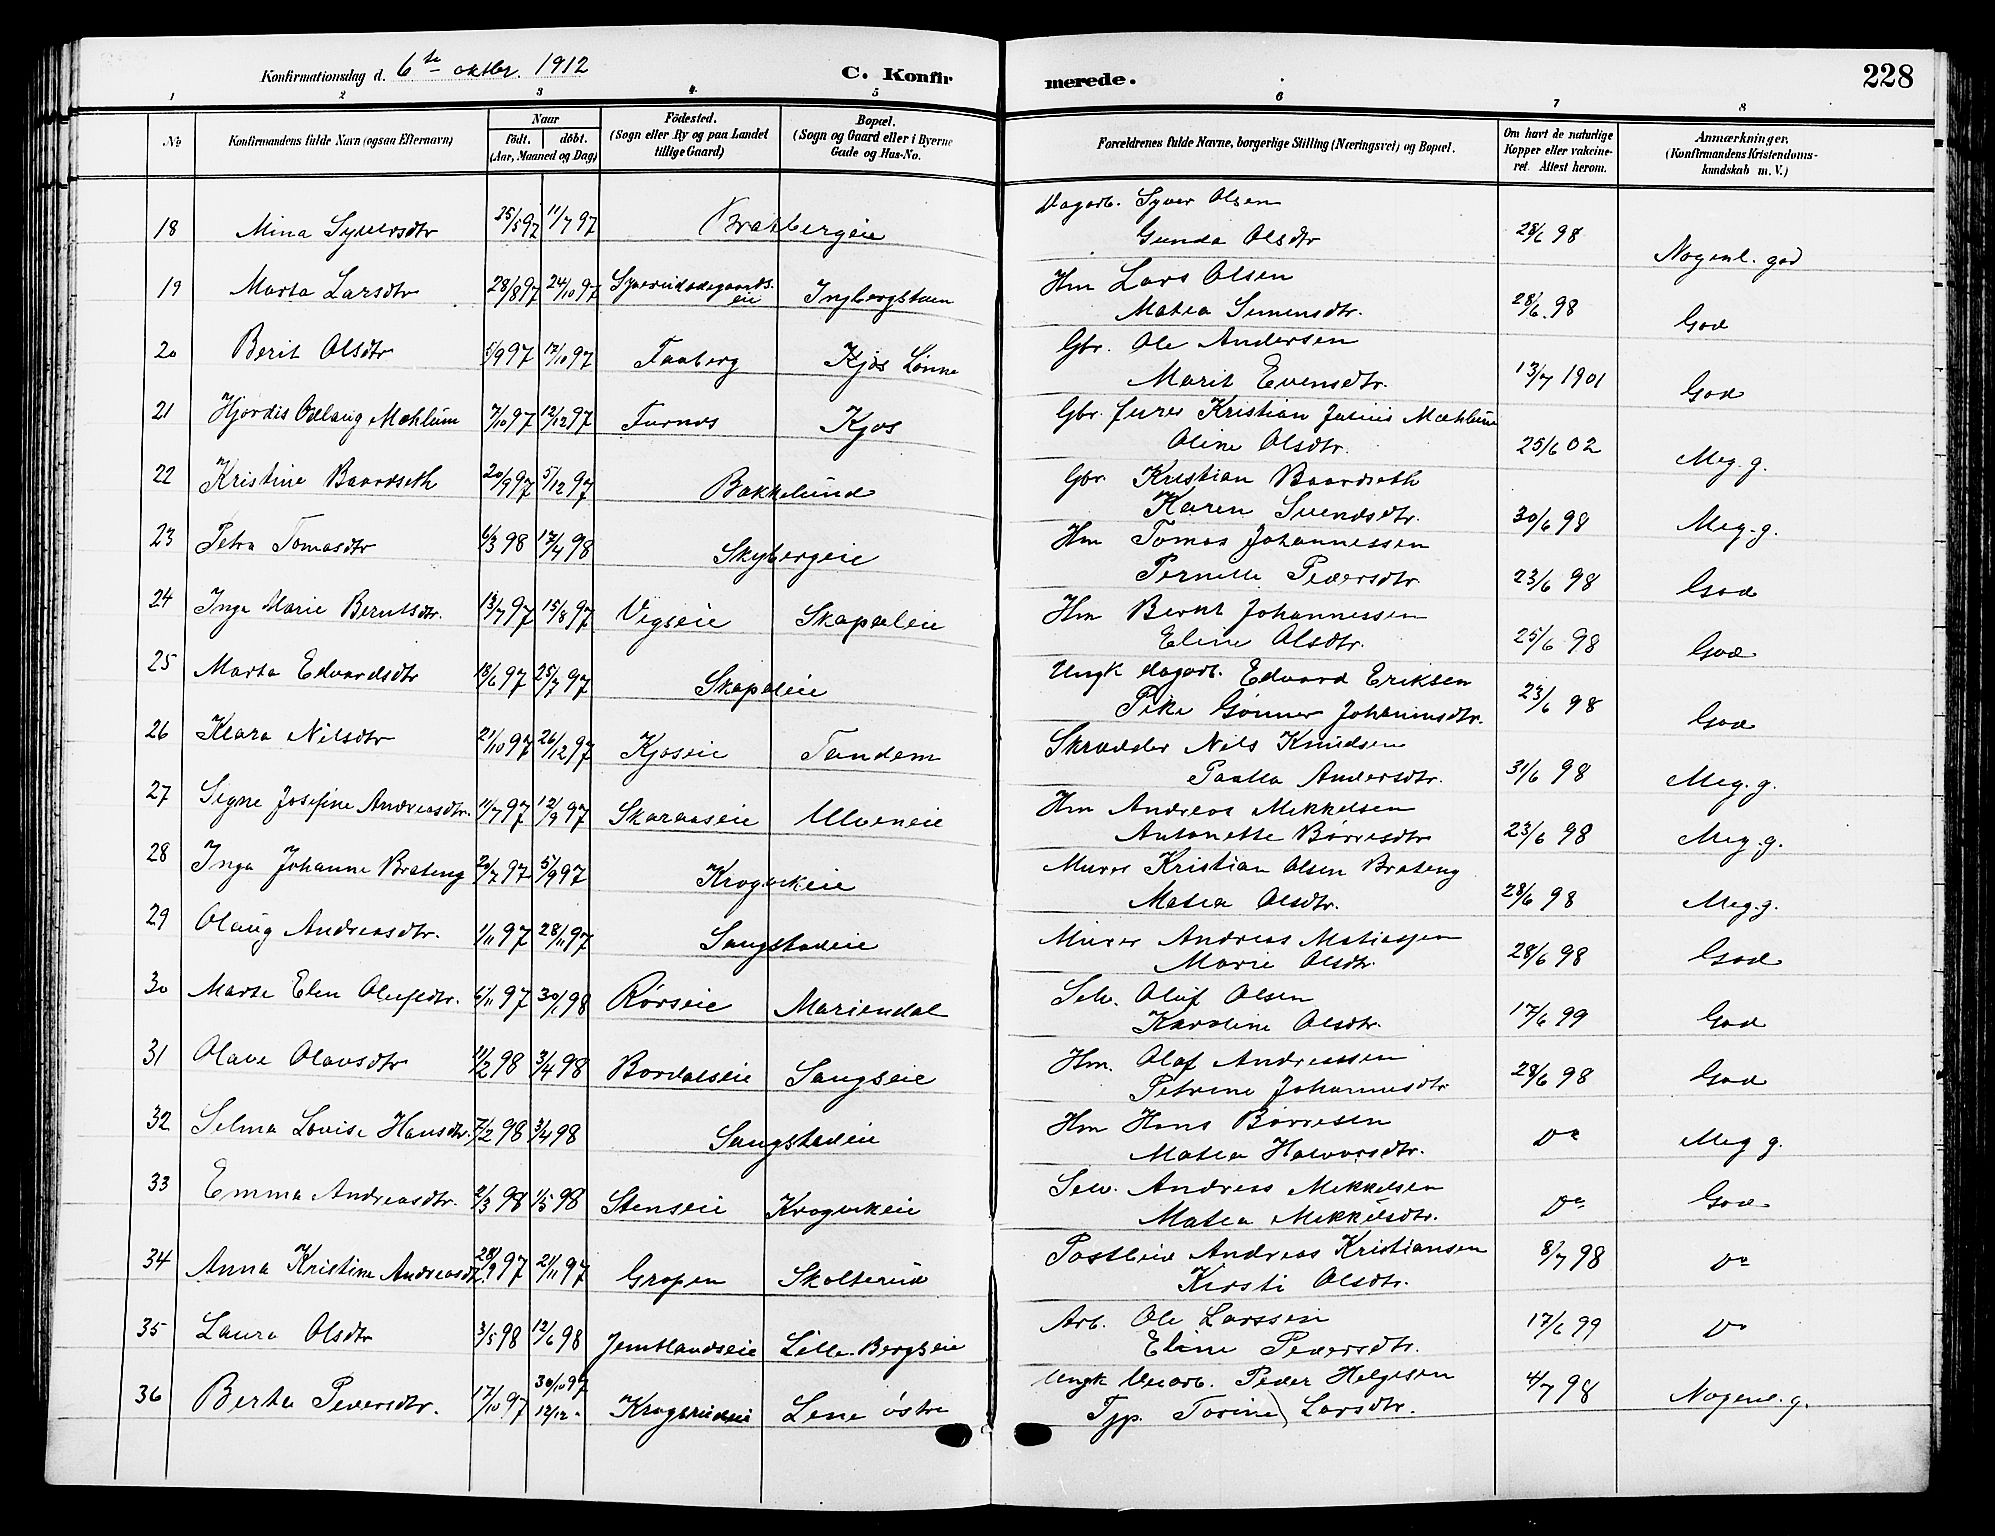 Konfirmationsdag d. 6te oktbr. 1912 C. Konfirmerede. 228
1 2 3 4 5 6 7 8
No Konfirmandens fulde Navn (ogsaa Efternavn) Naar født. døbt. (Aar, Maaned og Dag) Fødested. (Sogn eller By og paa Landet tillige Gaard) Bopæl. (Sogn og Gaard eller i Byerne Gade og Hus-No. Forældrenes fulde Navne, borgerlige Stilling (Næringsvei) og Bopæl. Om havt de naturlige Kopper eller vakcineret. Attest herom. Anmærkninger. (Konfirmandens Kristendomskundskab m. V.)
18 Mina Syversdtr 25/5 97 11/7 97 Bratbergeie Dagarb. Syver Olsen
Gunda Olsdtr 28/6 98 Nogenl. god
19 Marta Larsdtr 28/8 97 24/10 97 Ingbergstuen Hm Lars Olsen
Matea Simensdtr. 28/6 98 God
20 Berit Olsdtr 5/9 97 17/10 97 Faaberg Kjos Lønne Gbr. Ole Andersen
Marit Evensdtr. 13/7 1901 God
21 Hjørdis Odlaug Mæhlum 7/10 97 12/12 97 Furnes Kjos Gbr. furer Kristian Julius Mæhlum
Oline Olsdtr. 25/6 02 Meg. g.
22 Kristine Baardseth 20/9 97 5/12 97 Bakkelund Gbr. Kristian Baardseth
Karen Svendsdtr. 30/6 98 Meg. g.
23 Petra Tomasdtr 6/3 98 17/4 98 Skybergeie Hm Tomas Johannessen
Pernille Pedersdtr 23/6 98 God
24 Inga Marie Berntsdtr. 13/7 97 15/8 97 Vigseie Skapaleie Hm Bernt Johannessen
Eline Olsdtr. 25/6 98 God
25 Marta Edvardsdtr 13/6 97 25/7 97 Skapaleie Ungk dagarb. Edvard Eriksen
Pike Gønner Johannesdtr. 23/6 98 God
26 Klara Nilsdtr 21/10 97 26/12 97 Kjoseie Tandem Skrædder Nils Knudsen
Andersdtr. 31/6 98 Meg. g.
27 Signe Josefine Andreasdtr. 11/7 97 12/9 97 Skaraaseie Ulveneie Hm Andreas Mikkelsen
Antonette Børresdtr 23/6 98 Meg. g.
28 Inga Johanne Brateng 20/7 97 5/9 97 Krogvikeie Murer Kristian Olsen Brateng
Matea Olsdtr. 28/6 98 Meg. g.
29 Olaug Andreasdtr. 1/11 97 28/11 97 Sangstadeie Murer Andreas Matiasen
Marie Olsdtr. 28/6 98 God
30 Marte Elen Olufsdtr. 6/11 97 30/1 98 Rørseie Mariendal Selv. Oluf Olsen
Karoline Olsdtr. 17/6 99 God
31 Olave Olavsdtr 11/2 98 3/4 98 Bordalseie Sangseie Hm. Olaf Andreassen
Petrine Johannesdtr 28/6 98 God
32 Selma Lovise Hansdtr. 7/2 98 3/4 98 Sangstadeie Hm Hans Børresen
Matea Halvorsdtr. Do Meg g.
33 Emma Andreasdtr. 2/3 98 1/5 98 Stenseie Krogvikeie Selv. Andreas Mikkelsen
Matea Mikkelsdtr. Do God
34 Anna Kristine Andreasdtr 28/9 97 21/11 97 Gropen Skolterud Postbud Andreas Kristiansen
Kirsti Olsdtr. 8/7 98 Do
35 Laura Olsdtr 3/5 98 12/6 98 Jemtlandseie Lille Bergseie Arb. Ole Larssen
Eline Pedersdtr. 17/6 99 Do
36 Berta Pedersdtr. 17/10 97 30/10 97 12/12 - Krogsrudeie Lene østre Ungk Veiarb. Peder Helgesen
Tjp. Torine Larsdtr. 4/7 98 Nogenl. g.